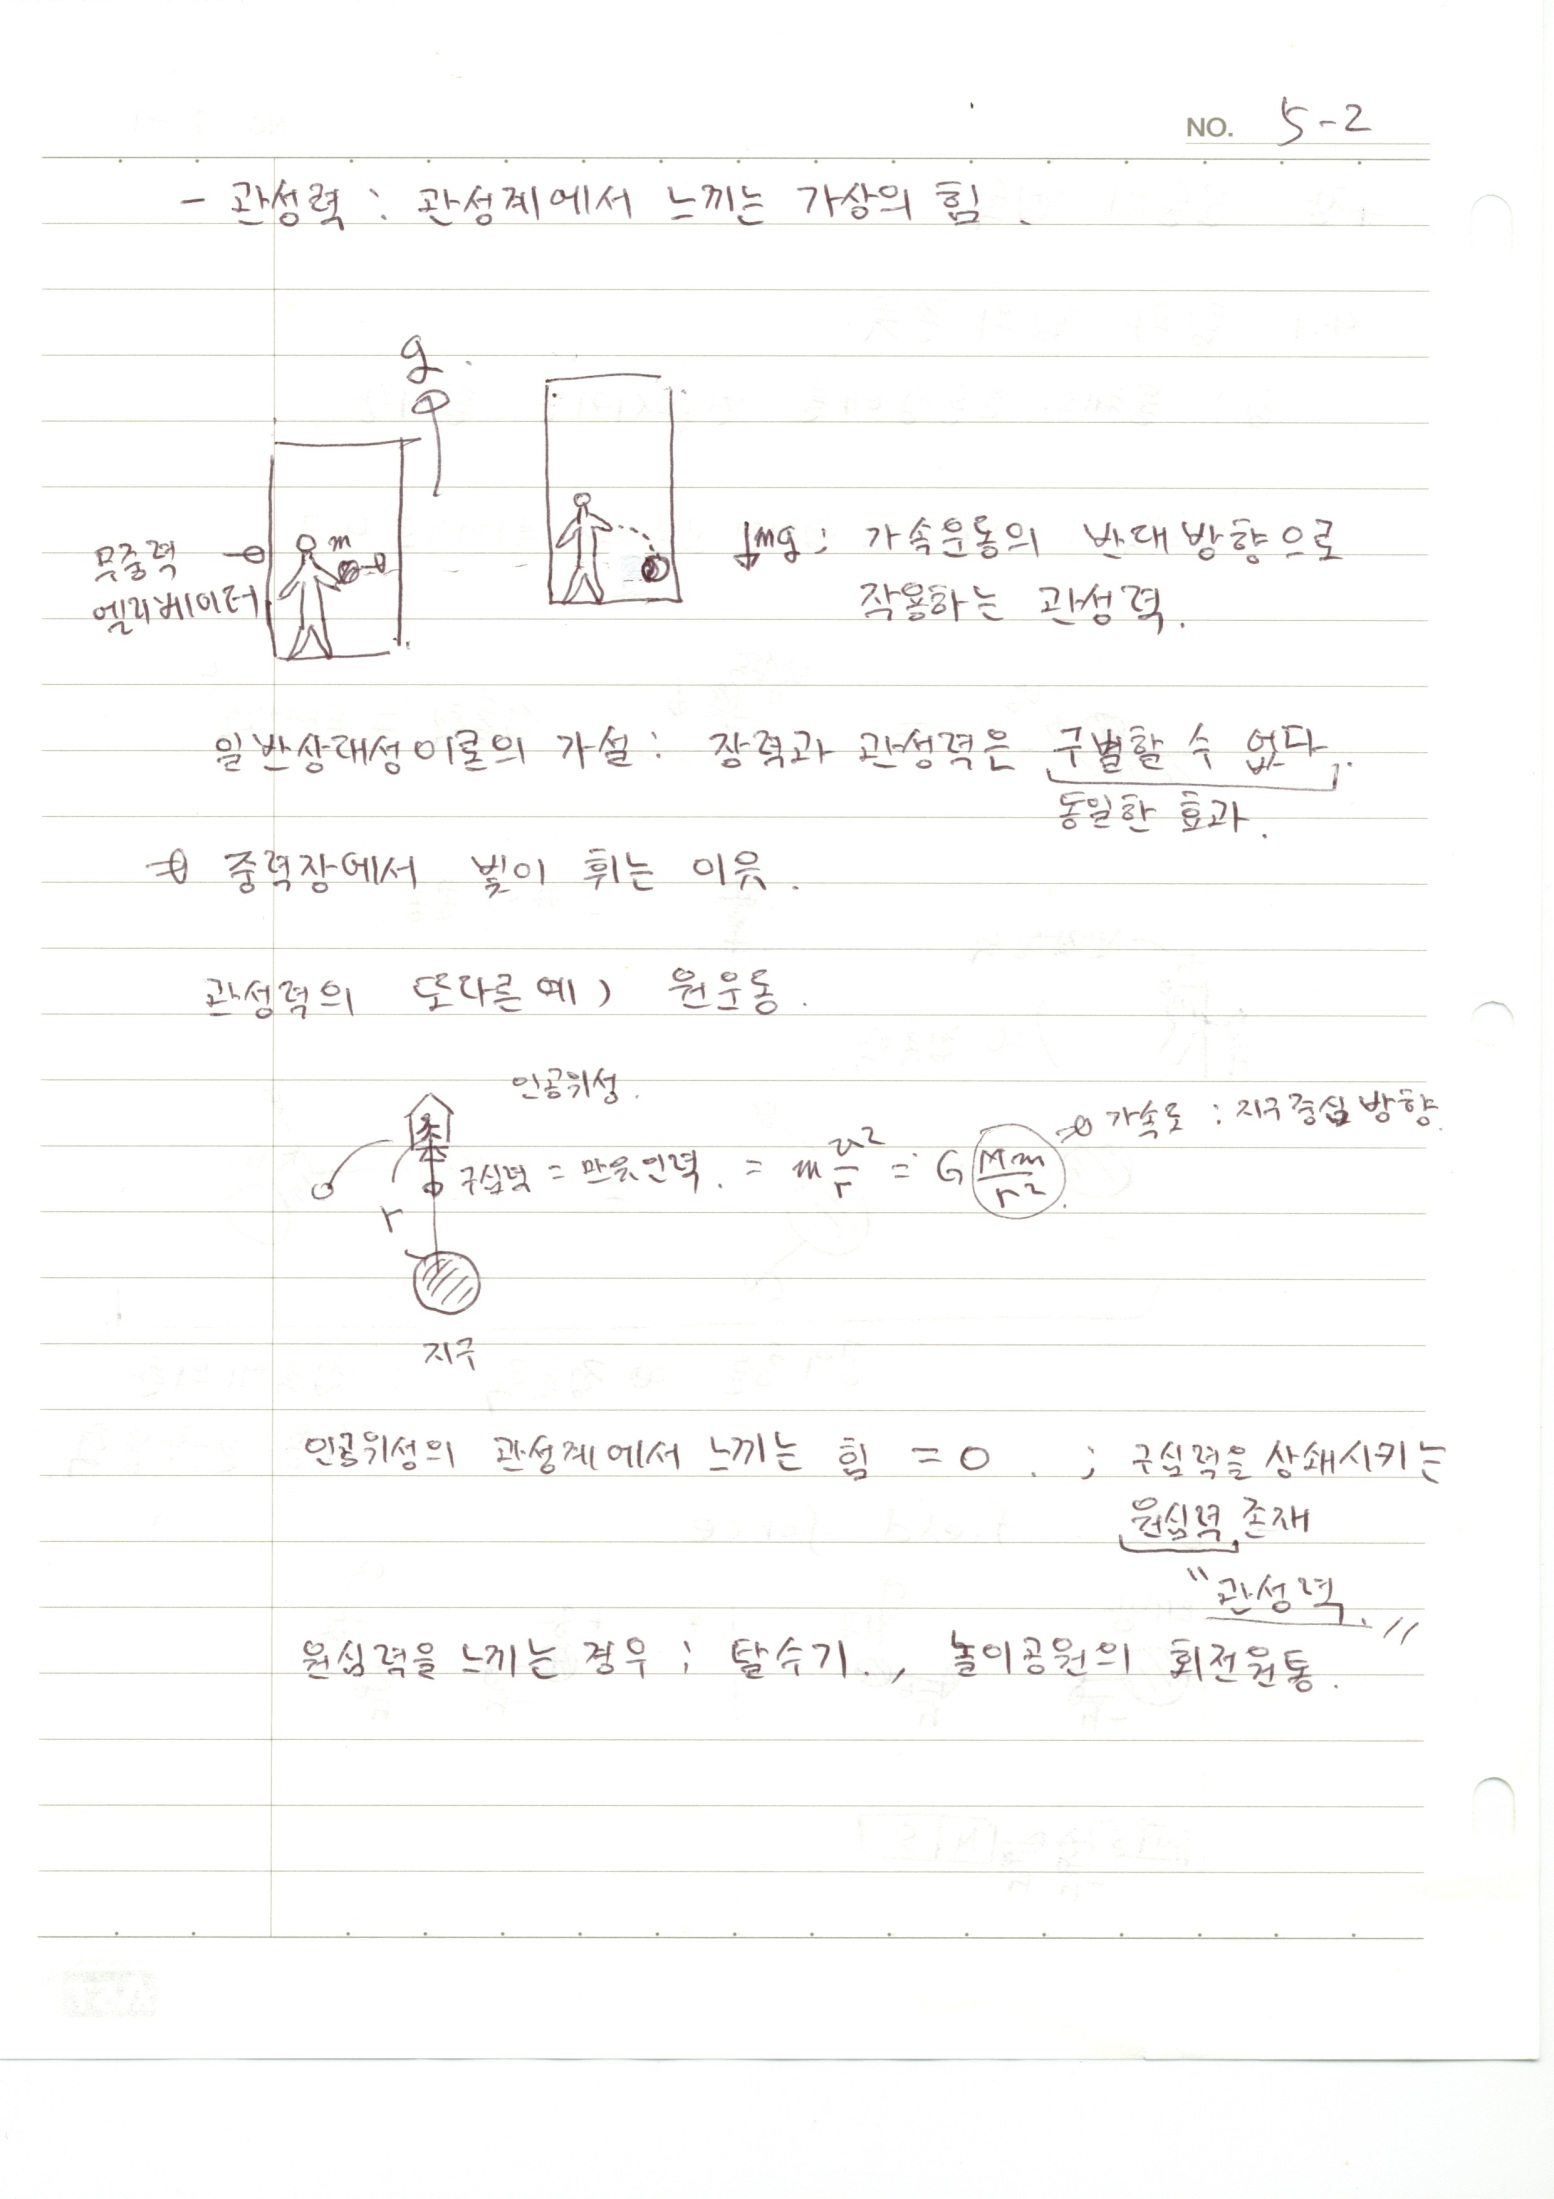 NO. 5-2
- 관성력 : 관성계에서 느끼는 가상의 힘.
g
m
무중력
엘리베이터
↓mg : 가속운동의 반대방향으로
작용하는 관성력.
일반상대성이론의 가설 : 장력과 관성력은 구별할 수 없다.
동일한 효과.
→ 중력장에서 빛이 휘는 이유.
관성력의 또다른예) 원운동.
인공위성.
→ 가속도 : 지구중심방향.
구심력 = 만유인력. = m v²/r = G Mm/r²
r
지구
인공위성의 관성계에서 느끼는 힘 = 0. ; 구심력을 상쇄시키는
원심력 존재
"관성력."
원심력을 느끼는 경우 ; 탈수기., 놀이공원의 회전원통.